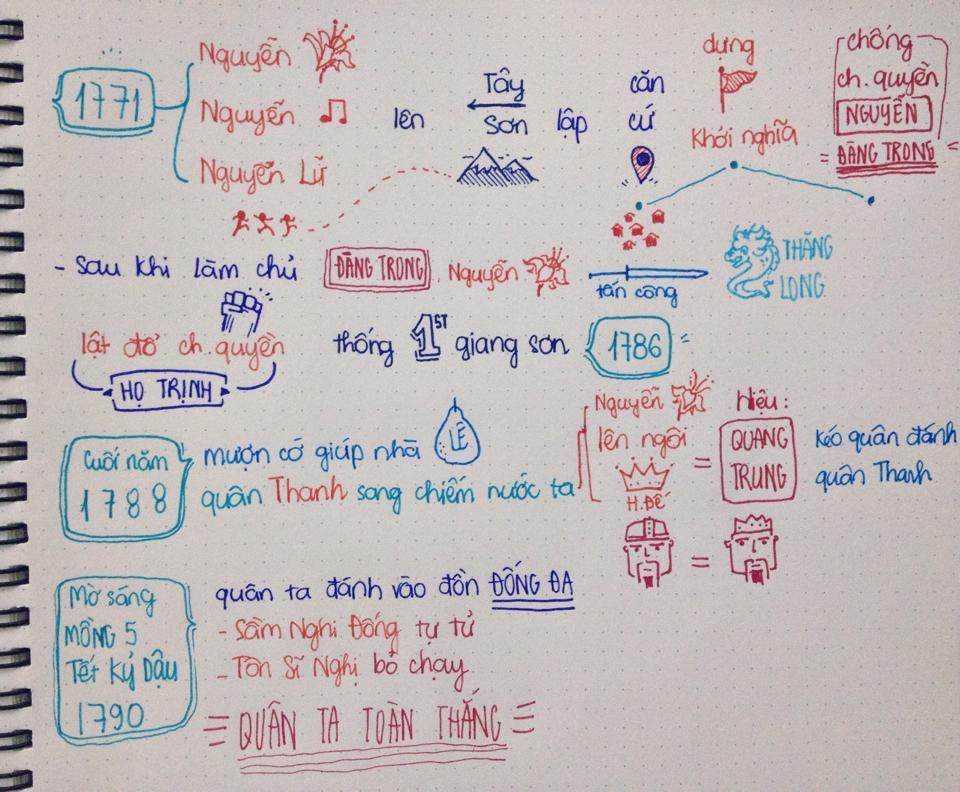 1771
Nguyễn
Nguyễn
Nguyễn Lữ
lên
Tây
Sơn
lập
căn
cứ
dựng
Khởi nghĩa
chống
ch. quyền
NGUYỄN
= ĐÀNG TRONG =
- Sau khi làm chủ ĐÀNG TRONG, Nguyễn
tấn công
THĂNG
LONG
lật đổ ch. quyền
HỌ TRỊNH
thống 1ST giang sơn 1786
Cuối năm
1788
mượn cớ giúp nhà LÊ
quân Thanh sang chiếm nước ta
Nguyễn
lên ngôi
H.ĐẾ
=
Hiệu:
QUANG
TRUNG
kéo quân đánh
quân Thanh
=
Mờ sáng
MỒNG 5
Tết Kỷ Dậu
1790
quân ta đánh vào đồn ĐỐNG ĐA
- Sầm Nghi Đống tự tử
- Tôn Sĩ Nghị bỏ chạy
QUÂN TA TOÀN THẮNG